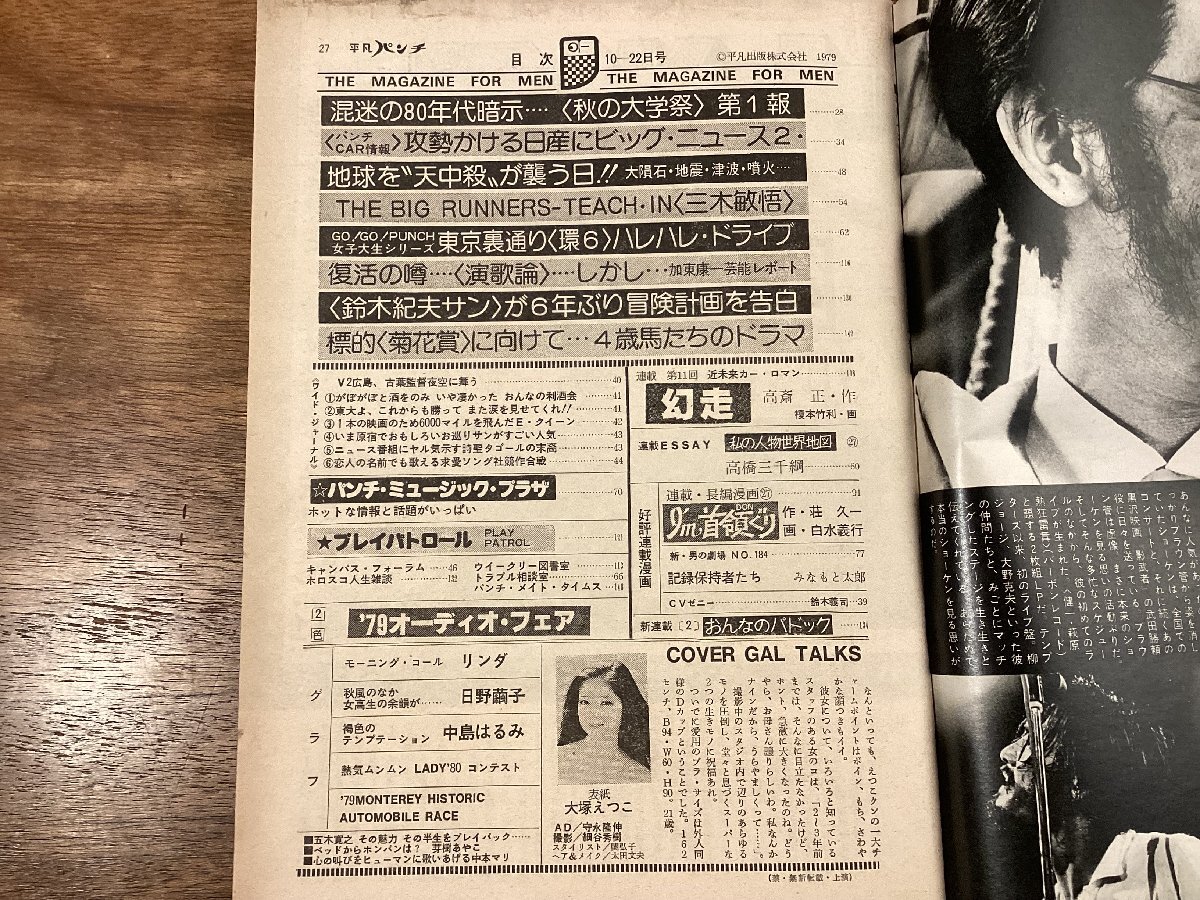 27 平凡パンチ
目次
10-22日号
©平凡出版株式会社 1979
THE MAGAZINE FOR MEN
THE MAGAZINE FOR MEN
混迷の80年代暗示‥‥〈秋の大学祭〉第1報 28
〈パンチCAR情報〉攻勢かける日産にビッグ・ニュース2・ 34
地球を〝天中殺〟が襲う日!! 大隕石・地震・津波・噴火… 48
THE BIG RUNNERS-TEACH・IN〈三木敏悟〉 54
GO/GO/PUNCH女子大生シリーズ 東京裏通り〈環6〉ハレハレ・ドライブ 62
復活の噂‥‥〈演歌論〉‥‥しかし…加東康一芸能レポート 116
〈鈴木紀夫サン〉が6年ぶり冒険計画を告白
標的〈菊花賞〉に向けて…4歳馬たちのドラマ
〈ワイド・ジャーナル〉
V2広島、古葉監督夜空に舞う 40
①がぽがぽと酒をのみ いや凄かった おんなの利酒会 41
②東大よ、これからも勝って また涙を見せてくれ!! 41
③1本の映画のため6000マイルを飛んだE・クイーン 42
④いま原宿でおもしろいお巡りサンがすごい人気 43
⑤ニュース番組にヤル気示す詩聖タゴールの末裔 43
⑥恋人の名前でも歌える求愛ソング社競作合戦 44
☆パンチ・ミュージック・プラザ 70
ホットな情報と話題がいっぱい
★プレイパトロール PLAY PATROL
キャンパス・フォーラム 46
ホロスコ人生雑談 132
ウイークリー図書室 112
トラブル相談室 66
パンチ・メイト・タイムス
[2]色 '79オーディオ・フェア
グラフ
モーニング・コール リンダ
秋風のなか女高生の余韻が…… 日野繭子
褐色のテンプテーション 中島はるみ
熱気ムンムン LADY'80 コンテスト
'79MONTEREY HISTORIC
AUTOMOBILE RACE
■五木寛之 その魅力 その半生をプレイバック……
■ベッドからホンバンは? 芽樹あやこ
■心の叫びをヒューマンに歌いあげる中本マリ
連載 第11回 近未来カー・ロマン 18
幻走 高斎 正・作
榎本竹利・画
連載ESSAY 私の人物世界地図 ㉗
高橋三千綱 60
好評連載漫画
連載・長編漫画㉗ 94
I'm首領ぐり DON
作・荘 久一
画・白水義行
新・男の劇場 NO.184 77
記録保持者たち みなもと太郎
CVゼニー 鈴木義司 39
新連載〔2〕おんなのパドック
COVER GAL TALKS
なんといっても、えつこクンの一大チ
ャームポイントはボイン、もち、さわや
かな顔つきもイイ。
彼女について、いろいろと知っている
スタッフのある女のコは、「2〜3年前
までは、そんなに目立たなかったけど、
ホント、急激に大きくなったのね。どう
やら、お母さん譲りらしいわ。私なんか
ナインだから、うらやましくって……。
撮影中のスタジオ内で辺りのあらゆる
モノを圧倒し、堂々と息づくスーパーな
2つの生きモノに祝福あれ。
ついでに愛用のブラ・サイズは外人同
様のDカップということでした。162
センチ、B94・W60・H90。21歳。
表紙
大塚えつこ
AD/守永隆伸
撮影/細谷秀樹
スタイリスト/関弘子
ヘア&メイク/太田文夫
(禁・無断転載・上演)